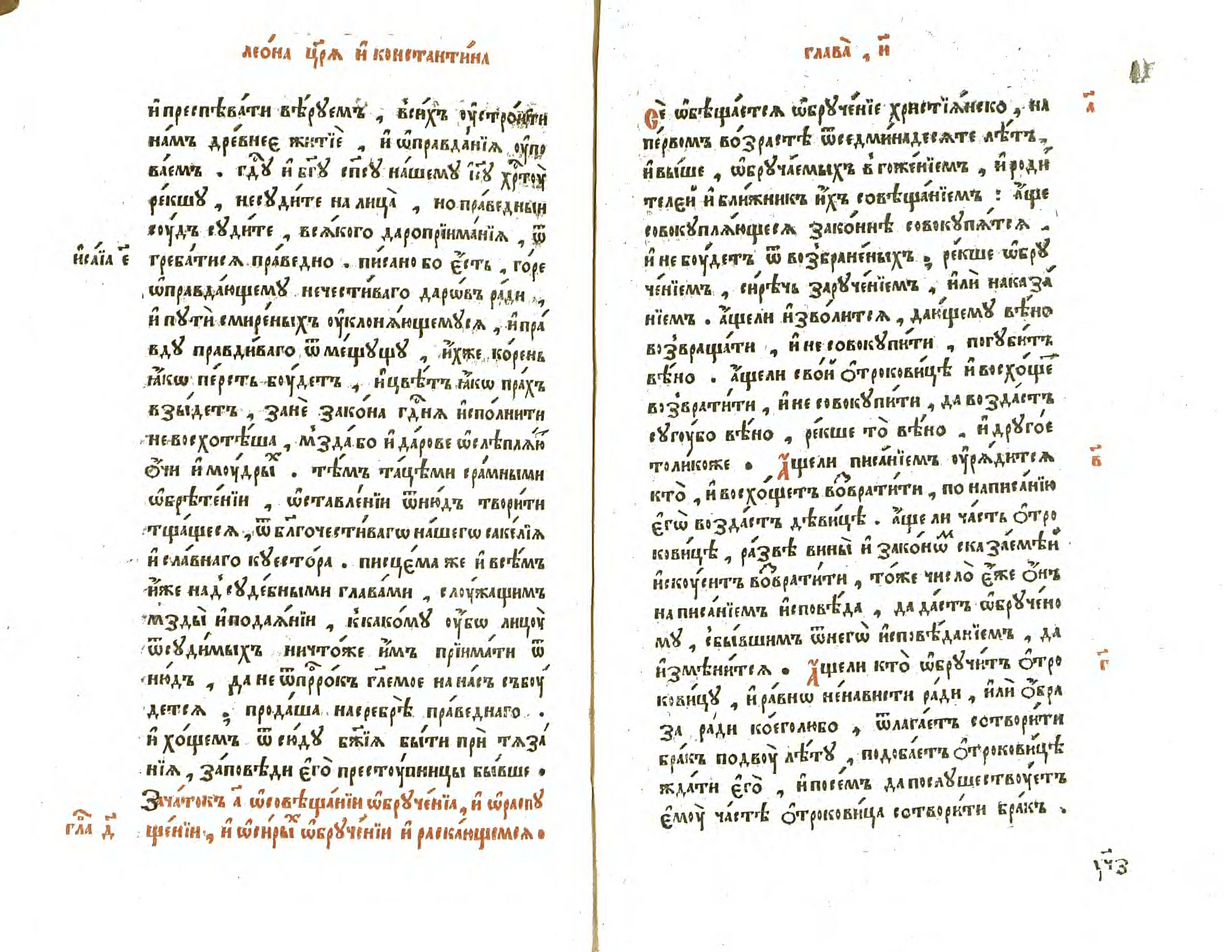 леѡ́на цр҃ѧ и҆ константи́на
и҆преспѣва́ти вѣ́рꙋемъ , вси́хъ ᲂу҆строи́ти
на́мъ дре́внеє житїѐ , и҆ ѡ҆правда́нїѧ ᲂу҆по
ва́емъ . гдⷭ҇ꙋ и҆ бг҃ꙋ сп҃сꙋ на́шемꙋ і҆с҃ꙋ хрⷭ҇тоу
ре́кшꙋ , несꙋди́те на лица̀ , но пра́ведныи
со́удъ сꙋди́те , всѧ́кого даропрїима́нїѧ , ѿ
и҆са́їа є҃
греба́тисѧ пра́ведно . пи́сано бо є҆́сть , го́ре
ѡ҆правда́ющемꙋ нечести́ваго даро́въ ра́ди ,
и҆ пꙋтѝ смире́ныхъ ᲂу҆клонѧ́ющемꙋсѧ , и҆ пра́
вдꙋ правди́ваго ѿме́щꙋщꙋ , и҆́хже ко́рень
ꙗ҆́кѡ пе́рсть бо́удетъ , и҆ цвѣ́тъ ꙗ҆́кѡ пра́хъ
взы́детъ , занѐ зако́на гдⷭ҇нѧ и҆спо́лнити
не восхотѣ́ша , мзда́ бо и҆ да́рове ѡ҆слѣплѧ́ю
ѻ҆́чи и҆ мо́удрыⷯ . тѣ́мъ та́цѣми сра́мными
ѡ҆брѣ́тенїи , ѡ҆ставле́нїи ѿню́дъ твори́ти
тща́щесѧ , ѿ бл҃гочести́вагѡ на́шегѡ саке́лїѧ
и҆ сла́внаго кꙋесто́ра . писце́ма же и҆ всѣ́мъ
и҆̀же над̾ сꙋде́бными глава́ми , слоу́жащимъ
мзды̀ и҆ пода́ѧнїи , к̾какомꙋ ᲂу҆́бѡ лицоу̀
ѿсꙋди́мыхъ ничто́же и҆̀мъ прїима́ти ѿ
ню́дъ , да не ѿ прⷪ҇ро́къ гл҃емое на на́съ сбоу́
детсѧ ; прода́ша на сребрѣ̀ пра́веднаго .
и҆ хо́щемъ ѿ сю́дꙋ бж҃їѧ бы́ти при́ тѧза́
нїѧ , за́повѣди є҆гѡ̀ престо́упницы бы́вше .
Зача́токъ а҃ ѡ҆ совѣща́нїи ѡ҆брꙋче́нїѧ , и҆ ѡ҆ распꙋ
гла д҃
ще́нїи , и҆ ѡ҆ си́рыⷯ ѡ҆брꙋче́нїи и҆ раска́ющемсѧ .
глава̀ , и҃
Сѐ ѡ҆бѣща́етсѧ ѡ҆брꙋче́нїе христїѧ́нско , на
а҃
пе́рвомъ во́зрастѣ ѿ седмина́десѧте лѣ́тъ ,
и҆ вы́ше , ѡ҆брꙋча́емыхъ в̾гоже́нїемъ , и҆ роди́
теле́й и҆ бли́жникъ и҆́хъ совѣща́нїемъ : а҆́ще
совокꙋплѧ́ющесѧ зако́ннѣ совокꙋпѧ́тсѧ .
и҆ не бо́удетъ ѿ возбране́ныхъ ; ре́кше ѡ҆брꙋ
че́нїемъ , си́рѣчь зарꙋче́нїемъ , и҆лѝ наказа́
нїемъ . а҆́щели и҆зво́литсѧ , да́вшемꙋ вѣ́но
возвраща́ти , и҆ не совокꙋпи́ти , погꙋби́тъ
вѣ́но . а҆́щели сво́й ѻ҆трокови́цѣ и҆ восхо́щеⷮ
возврати́ти , и҆ не совокꙋпи́ти , да возда́стъ
сꙋго́убо вѣ́но , ре́кше то̀ вѣ́но , и҆ дрꙋго́е
толи́коже . А҆́щели писа́нїемъ ᲂу҆рѧди́тсѧ
в҃
кто̀ , и҆ восхо́щетъ воⷥврати́ти , по написа́нїю
є҆гѡ̀ возда́стъ дѣви́цѣ . а҆́ще ли ча́сть ѻ҆тро
кови́цѣ , ра́звѣ вины̀ и҆ зако́нѡⷨ сказа́емѣй
и҆ско́уситъ воⷥврати́ти , то́же число̀ є҆́же ѻ҆́нъ
написа́нїемъ и҆сповѣ́да , да да́стъ ѡ҆брꙋче́но
мꙋ , сбы́вшимъ ѿ негѡ̀ и҆сповѣ́данїемъ , да
и҆змѣни́тсѧ . А҆́щели кто̀ ѡ҆брꙋчи́тъ ѻ҆тро
г҃
кови́цꙋ , и҆ ра́внѡ не́нависти ра́ди , и҆лѝ ѻ҆́бра
за ра́ди ко́еголюбо , ѿлага́етъ сотвори́ти
бра́къ по двоу̀ лѣ́тꙋ , подоба́етъ ѻ҆трокови́цѣ
жда́ти є҆го̀ , и҆ посе́мъ да послꙋ́шествоу́етъ
є҆моу̀ ча́стѣ ѻ҆трокови́ца сотвори́ти бра́къ .